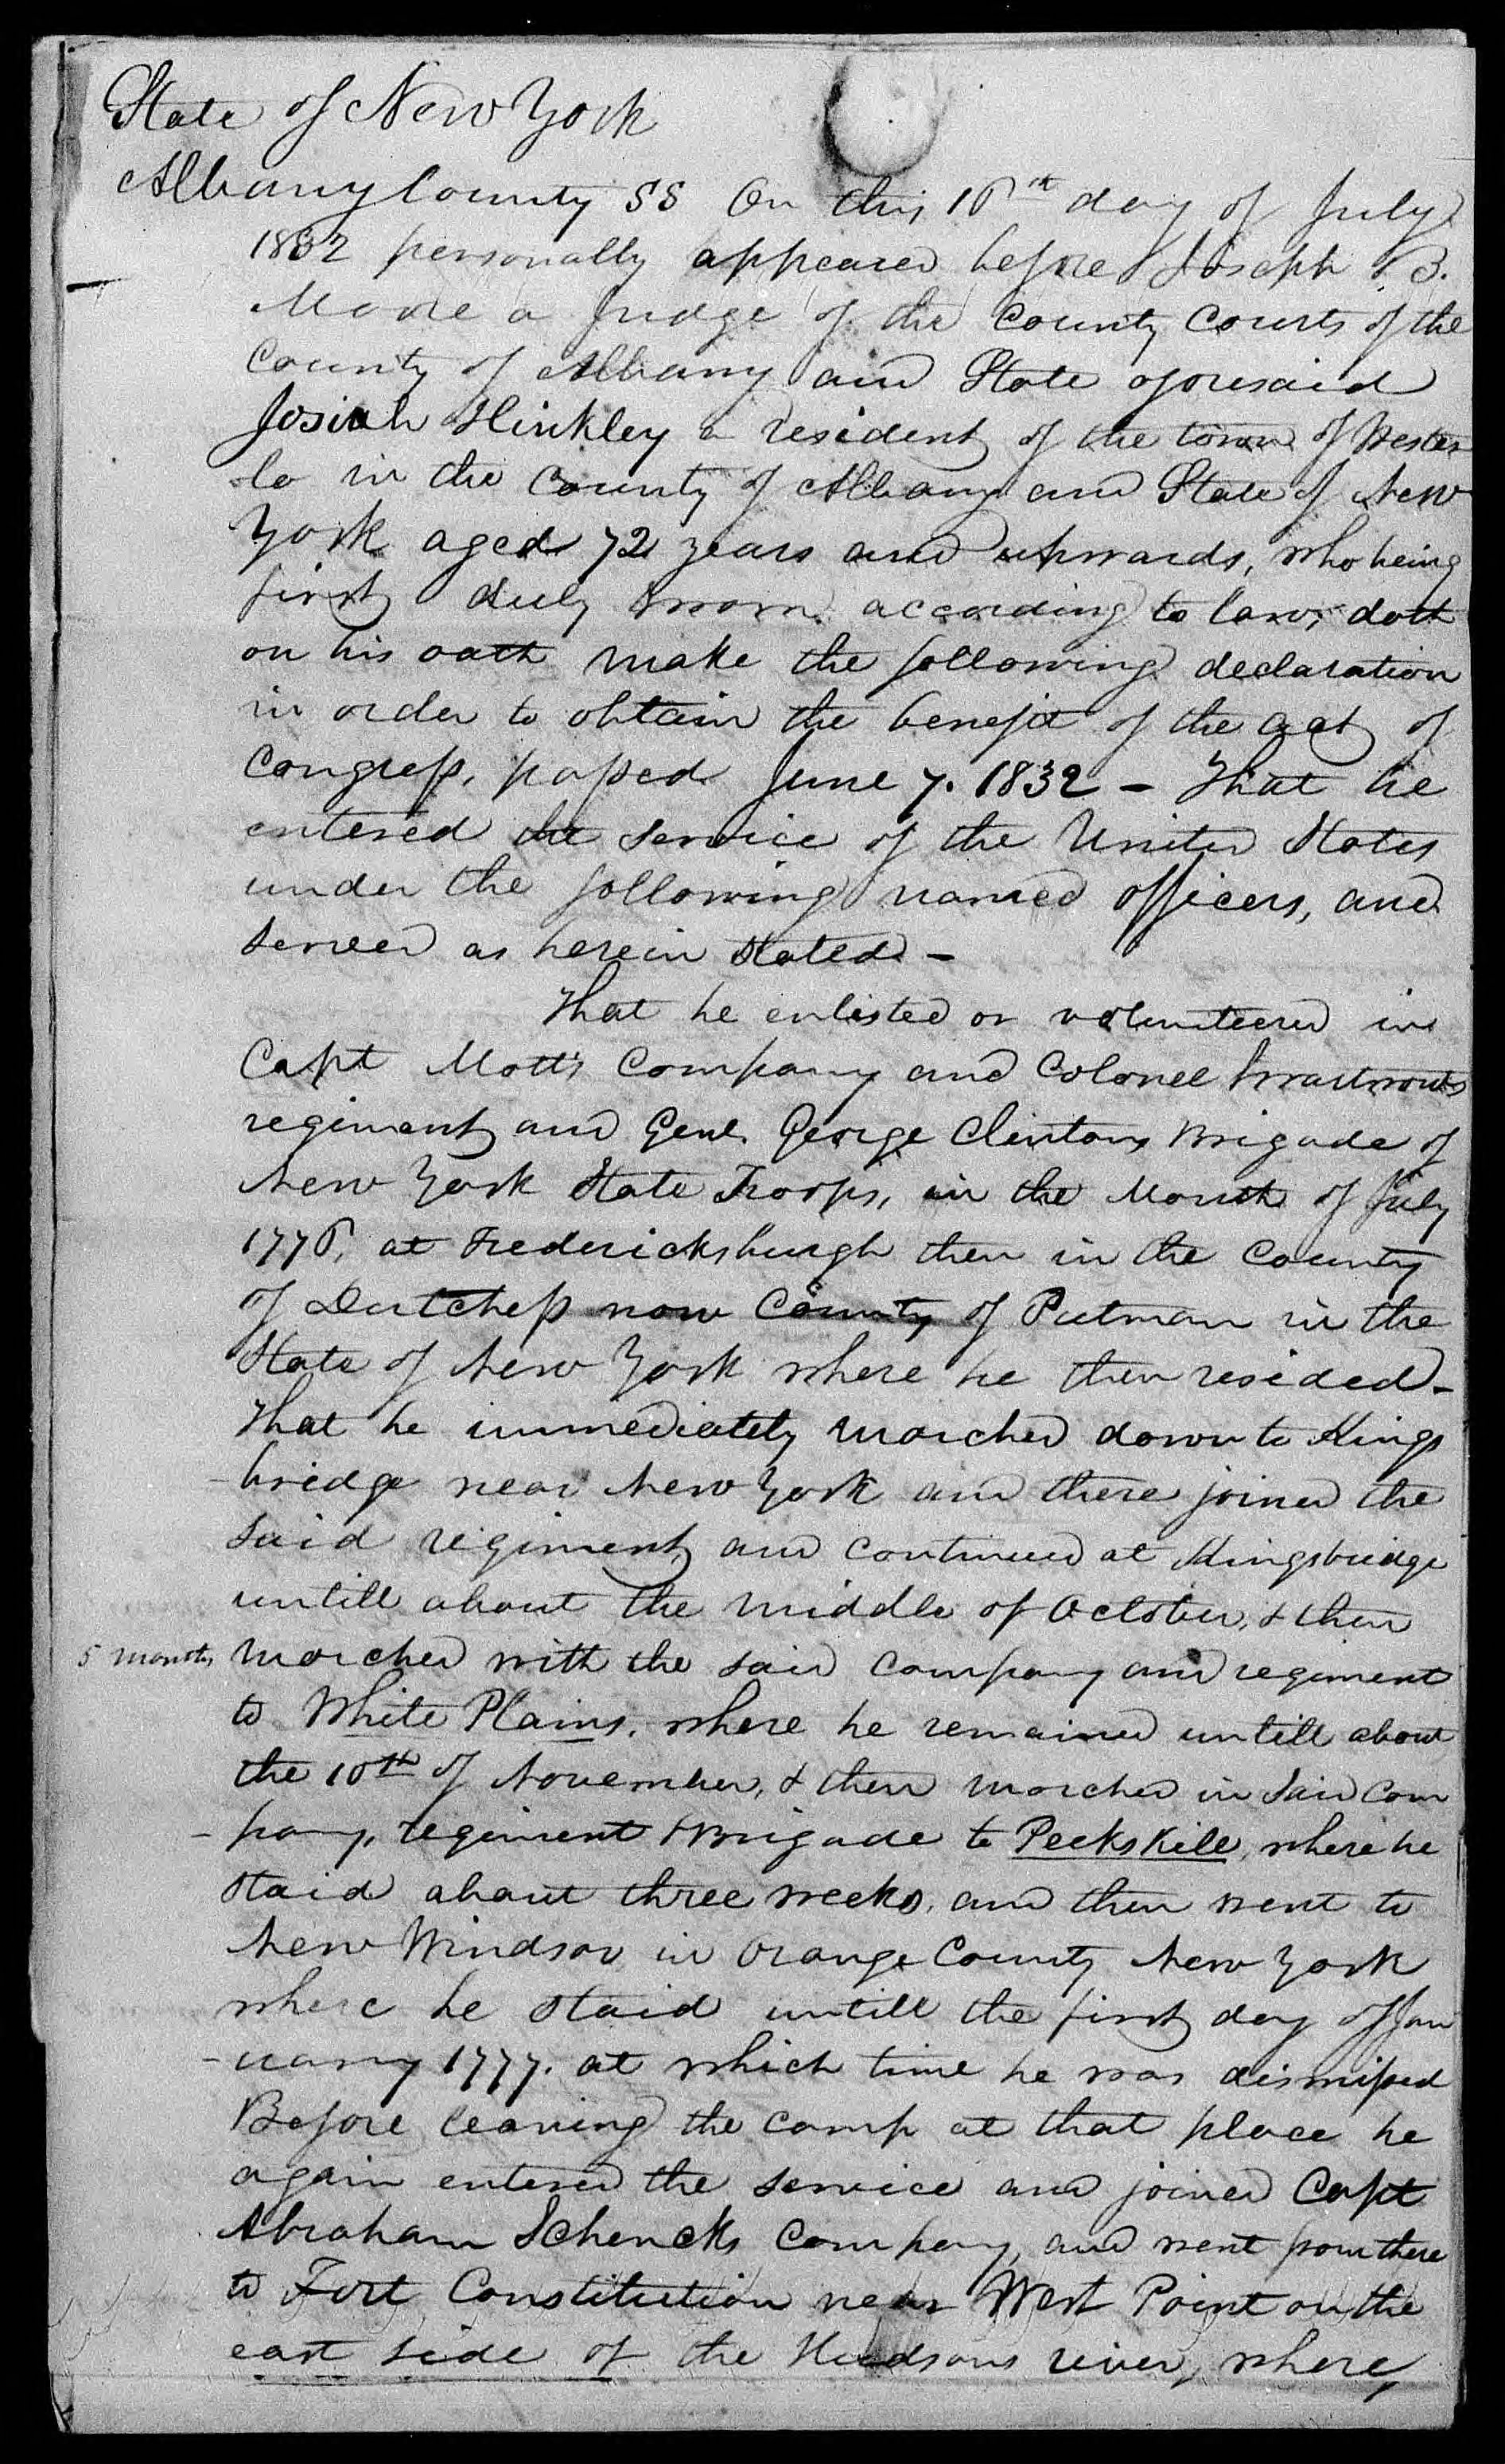 State of New York
Albany County SS On this 16th day of July
1832 personally appeared before Joseph B.
Moore a Judge of the County Courts of the
County of Albany and State aforesaid
Josiah Hinkley a resident of the town of Wester
lo in the County of Albany and State of New
York aged 72 years and upwards, who being
first duly sworn according to law, doth
on his oath make the following declaration
in order to obtain the benefit of the act of
Congress, passed June 7. 1832 - That he
entered the service of the United States
under the following named officers, and
served as herein stated. -
That he enlisted or volunteered in
Capt Motts Company and Colonel Swartwouts
regiment and Genl. George Clintons Brigade of
New York State Troops, in the Month of July
1776, at Fredericksburgh then in the County
of Dutchess now County of Putman in the
State of New York where he then resided -
That he immediately marched down to Kings
-bridge near New York and there joined the
said regiment and continued at Kingsbridge
untill about the middle of October, & then
5 months marched with the said company and regiment
to White Plains, where he remained untill about
the 10th of November, & then marched in said Com
-pany, regiment & Brigade to Peekskill, where he
staid about three weeks, and then went to
New Windsor in Orange County New York
where he staid untill the first day of Jan
-uary 1777. at which time he was dismissed
Before leaving the camp at that place he
again entered the service and joined Capt
Abraham Schencks Company, and went from there
to Fort Constitution near West Point on the
east side of the Hudsons river, where,